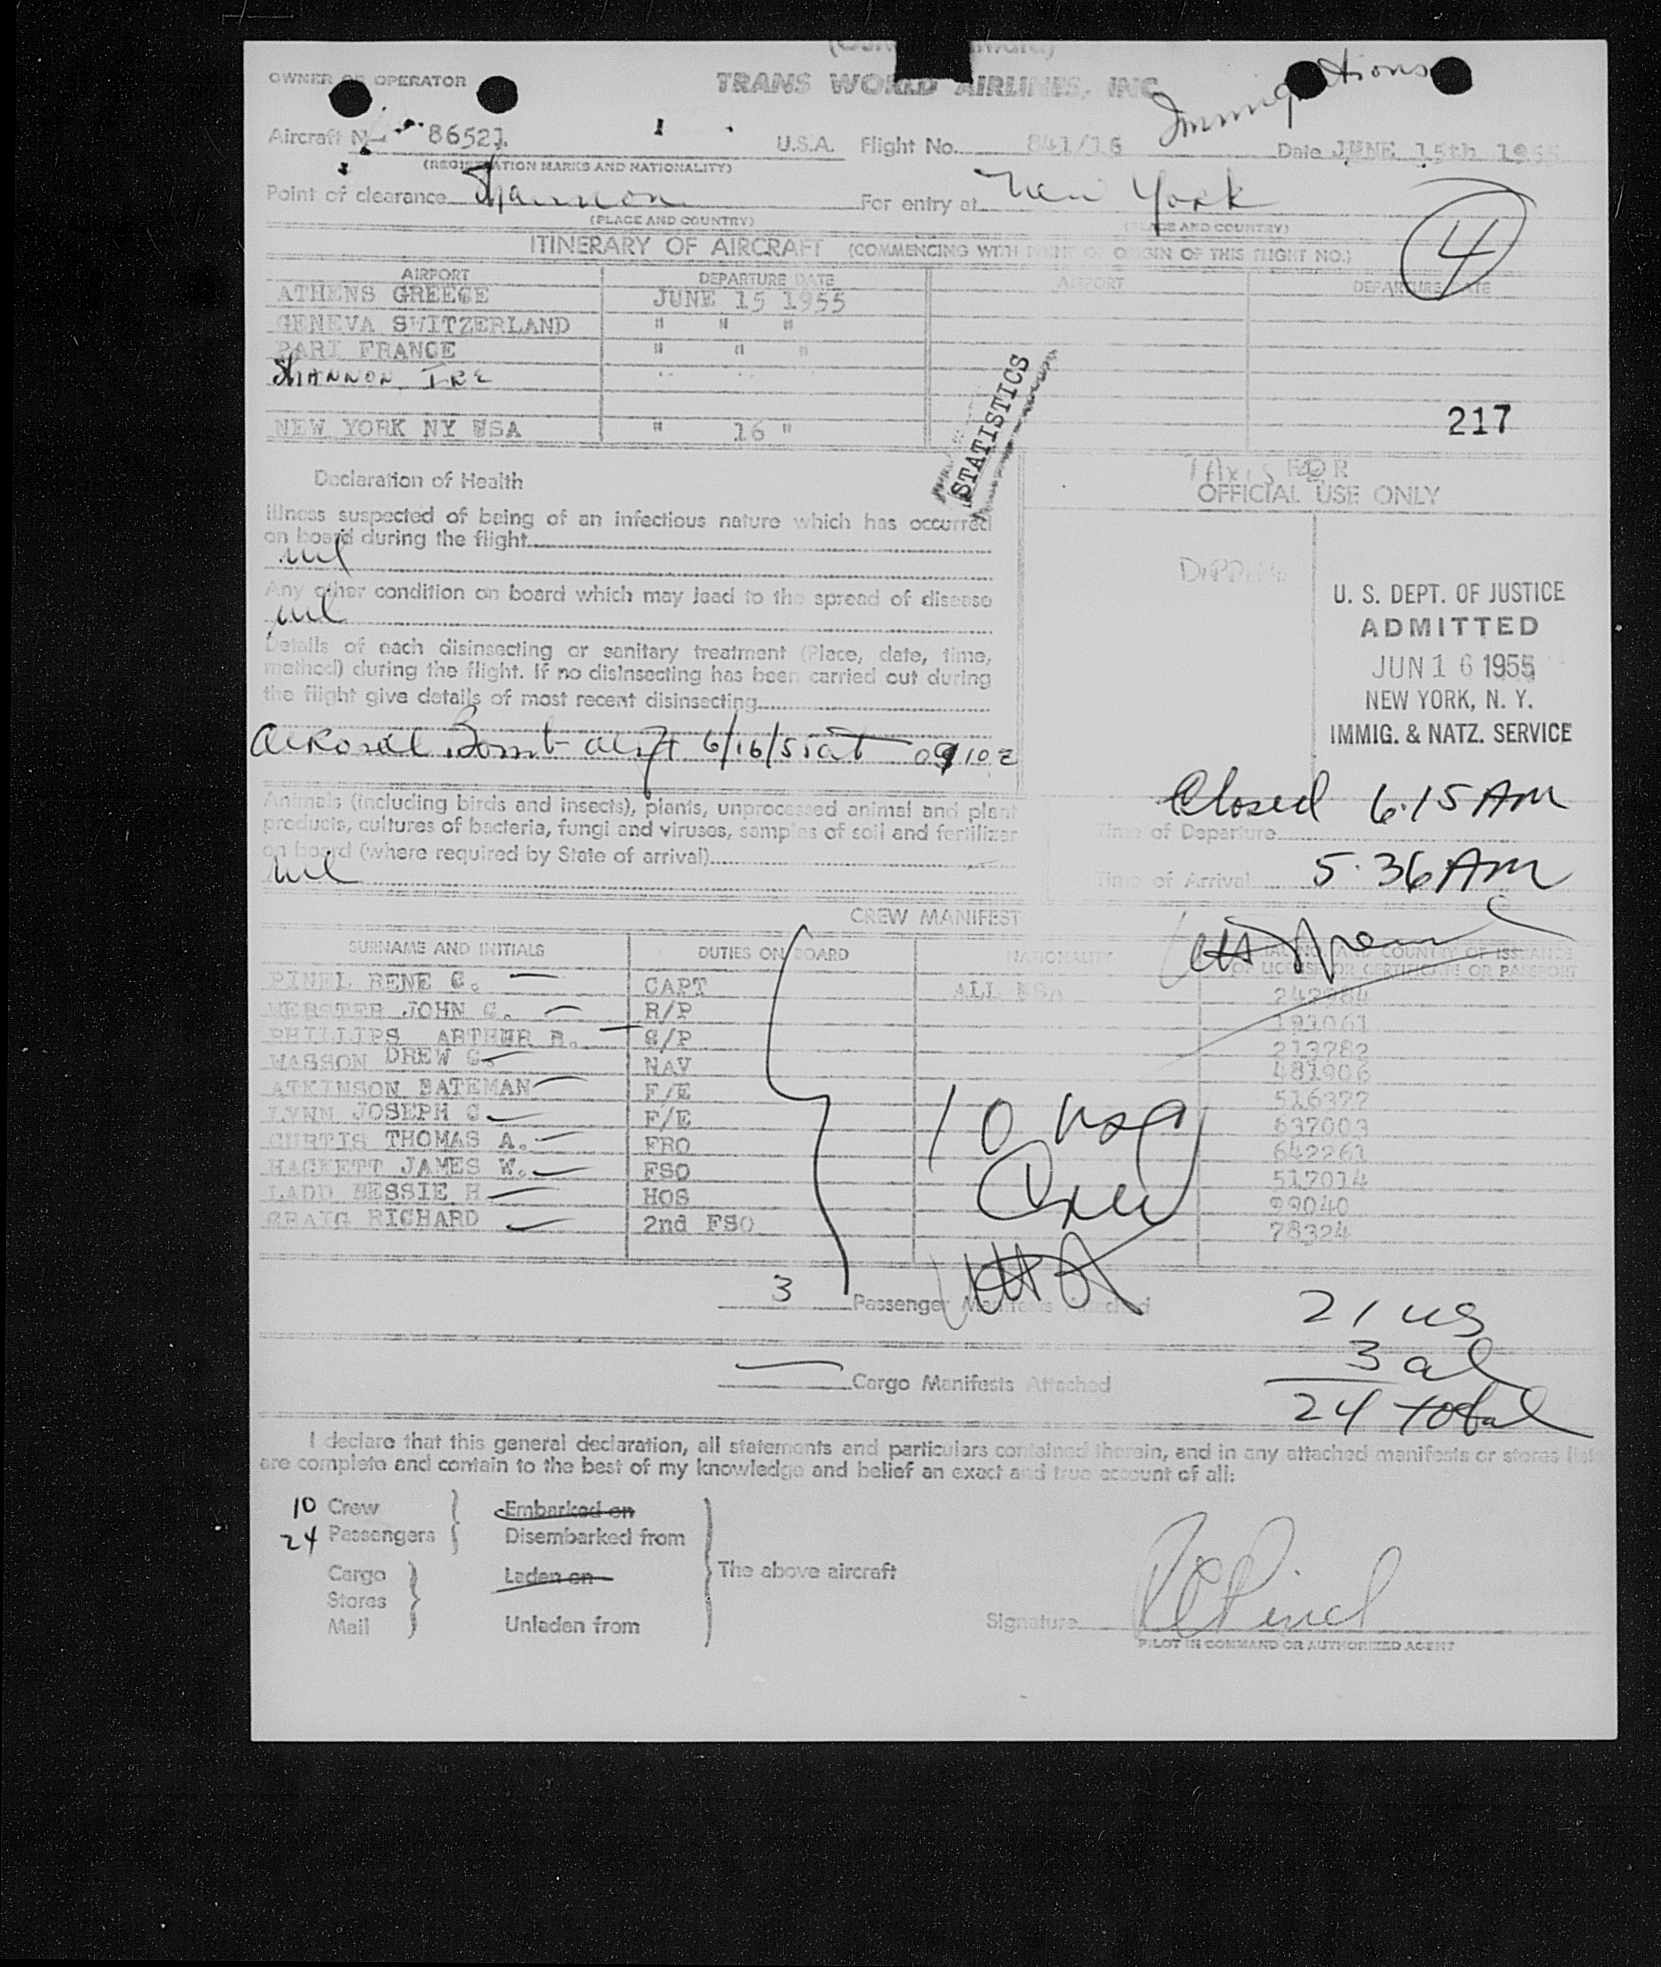 OWNER OR OPERATOR
TRANS WORLD AIRLINES, INC
Immigrations
Aircraft N 86521. U.S.A. Flight No. 841/16 Date JUNE 15th 1955
(REGISTRATION MARKS AND NATIONALITY)
Point of clearance Shannon For entry at New York
(PLACE AND COUNTRY) (PLACE AND COUNTRY)
4
ITINERARY OF AIRCRAFT (COMMENCING WITH POINT OF ORIGIN OF THIS FLIGHT NO.)
AIRPORT DEPARTURE DATE AIRPORT DEPARTURE DATE
ATHENS GREECE JUNE 15 1955
GENEVA SWITZERLAND " " "
PARI FRANCE " " "
SHANNON IRE
NEW YORK NY USA " 16 "
STATISTICS
217
Declaration of Health
TAXIS FOR
OFFICIAL USE ONLY
Illness suspected of being of an infectious nature which has occurred
on board during the flight
nil
Any other condition on board which may lead to the spread of disease
nil
Details of each disinsecting or sanitary treatment (Place, date, time,
method) during the flight. If no disinsecting has been carried out during
the flight give details of most recent disinsecting
U. S. DEPT. OF JUSTICE
ADMITTED
JUN 16 1955
NEW YORK, N. Y.
IMMIG. & NATZ. SERVICE
Bomb 6/16/55 at 0910z
Animals (including birds and insects), plants, unprocessed animal and plant
products, cultures of bacteria, fungi and viruses, samples of soil and fertilizer
on board (where required by State of arrival)
nil
Closed 6.15 AM
Time of Departure
Time of Arrival 5.36 AM
CREW MANIFEST
SURNAME AND INITIALS DUTIES ON BOARD NATIONALITY SERIAL NO. AND COUNTRY OF ISSUANCE
OF LICENSE OR CERTIFICATE OR PASSPORT
PINEL RENE C. CAPT ALL USA 242984
WEBSTER JOHN G. R/P 193061
PHILLIPS ARTHUR R. S/P 213782
WASSON DREW G. NAV 481906
ATKINSON BATEMAN F/E 516372
LYNN JOSEPH G F/E 637003
CURTIS THOMAS A. FRO 642261
HACKETT JAMES W. FSO 517014
LADD BESSIE H HOS 99040
CRAIG RICHARD 2nd FSO 78324
10 usa
Crew
3 Passenger Manifests Attached
21 us
3 al
24 total
Cargo Manifests Attached
I declare that this general declaration, all statements and particulars contained therein, and in any attached manifests or stores list
are complete and contain to the best of my knowledge and belief an exact and true account of all:
10 Crew Embarked on
24 Passengers Disembarked from
Cargo Laden on The above aircraft
Stores
Mail Unladen from
Signature
PILOT IN COMMAND OR AUTHORIZED AGENT